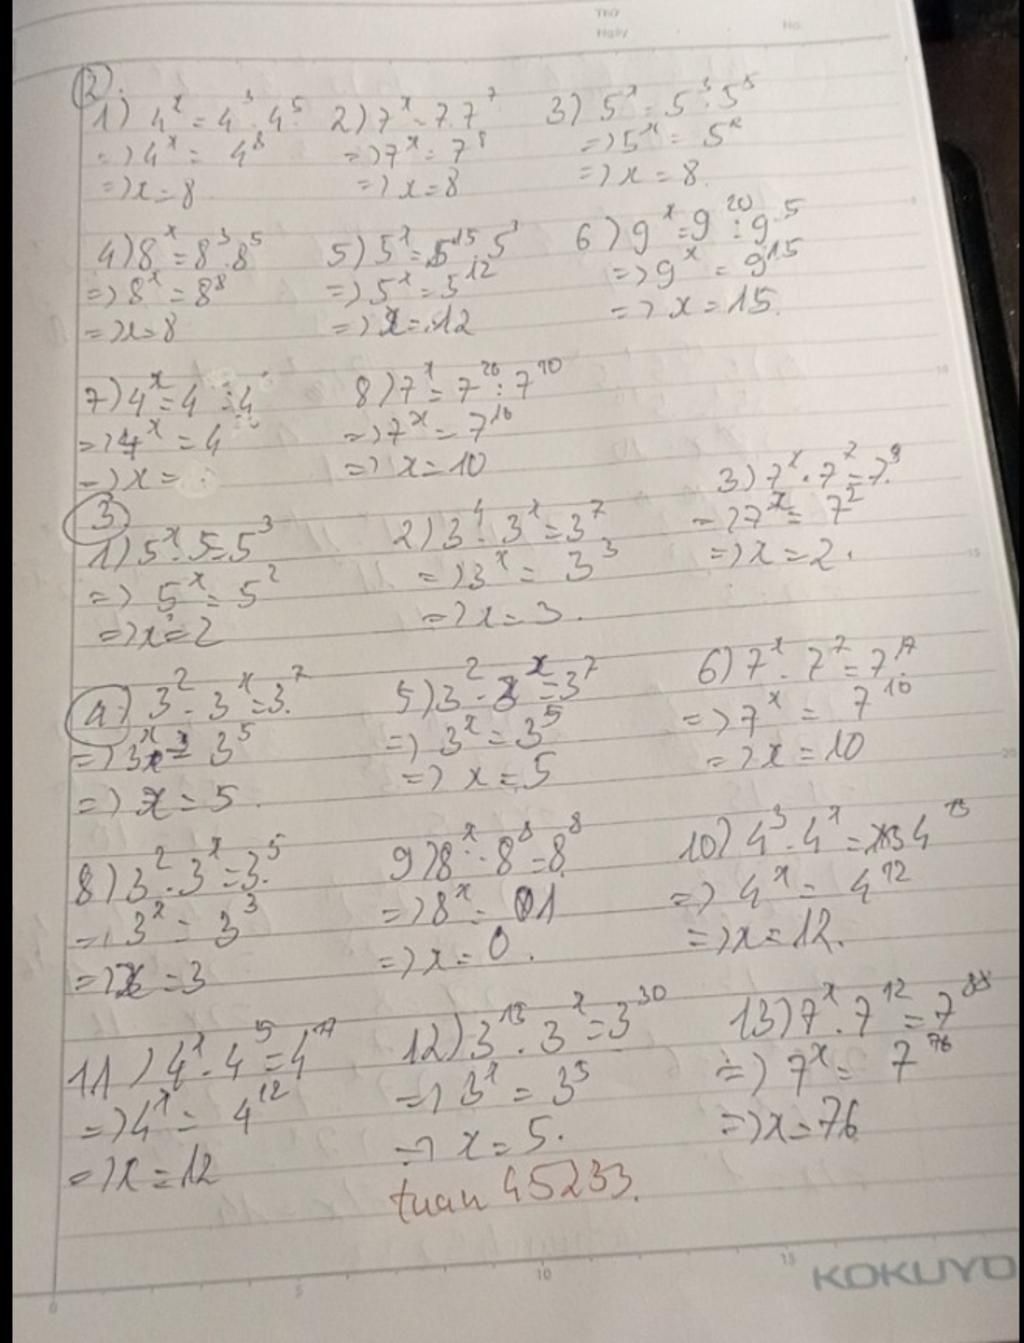 Thứ
Ngày No.
2.
1) 4^x = 4^3 . 4^5 2) 7^x = 7.7^7 3) 5^x = 5^3 . 5^5
=> 4^x = 4^8 => 7^x = 7^8 => 5^x = 5^8
=> x = 8 => x = 8 => x = 8.
4) 8^x = 8^3 . 8^5 5) 5^x = 5^15 : 5^3 6) 9^x = 9^20 : 9^5
=> 8^x = 8^8 => 5^x = 5^12 => 9^x = 9^15
=> x = 8 => x = 12 => x = 15.
7) 4^x = 4 : 4 8) 7^x = 7^20 : 7^10
=> 4^x = 4 => 7^x = 7^10
=> x = => x = 10
3.
1) 5^x . 5 = 5^3 2) 3^4 . 3^x = 3^7 3) 7^x . 7^7 = 7^9
=> 5^x = 5^2 => 3^x = 3^3 => 7^x = 7^2
=> x = 2 => x = 3. => x = 2.
4) 3^2 . 3^x = 3^7 5) 3^2 . 3^x = 3^7 6) 7^x . 7^7 = 7^17
=> 3^x = 3^5 => 3^x = 3^5 => 7^x = 7^10
=> x = 5. => x = 5 => x = 10
8) 3^2 . 3^x = 3^5 9) 8^x . 8^8 = 8^8 10) 4^3 . 4^x = 4^15
=> 3^x = 3^3 => 8^x = 1 => 4^x = 4^12
=> x = 3 => x = 0. => x = 12.
11) 4^x . 4^5 = 4^17 12) 3^15 . 3^x = 3^30 13) 7^x . 7^12 = 7^88
=> 4^x = 4^12 => 3^x = 3^5 => 7^x = 7^76
=> x = 12 => x = 5. => x = 76
tuan 45233.
0 5 10 15
KOKUYO